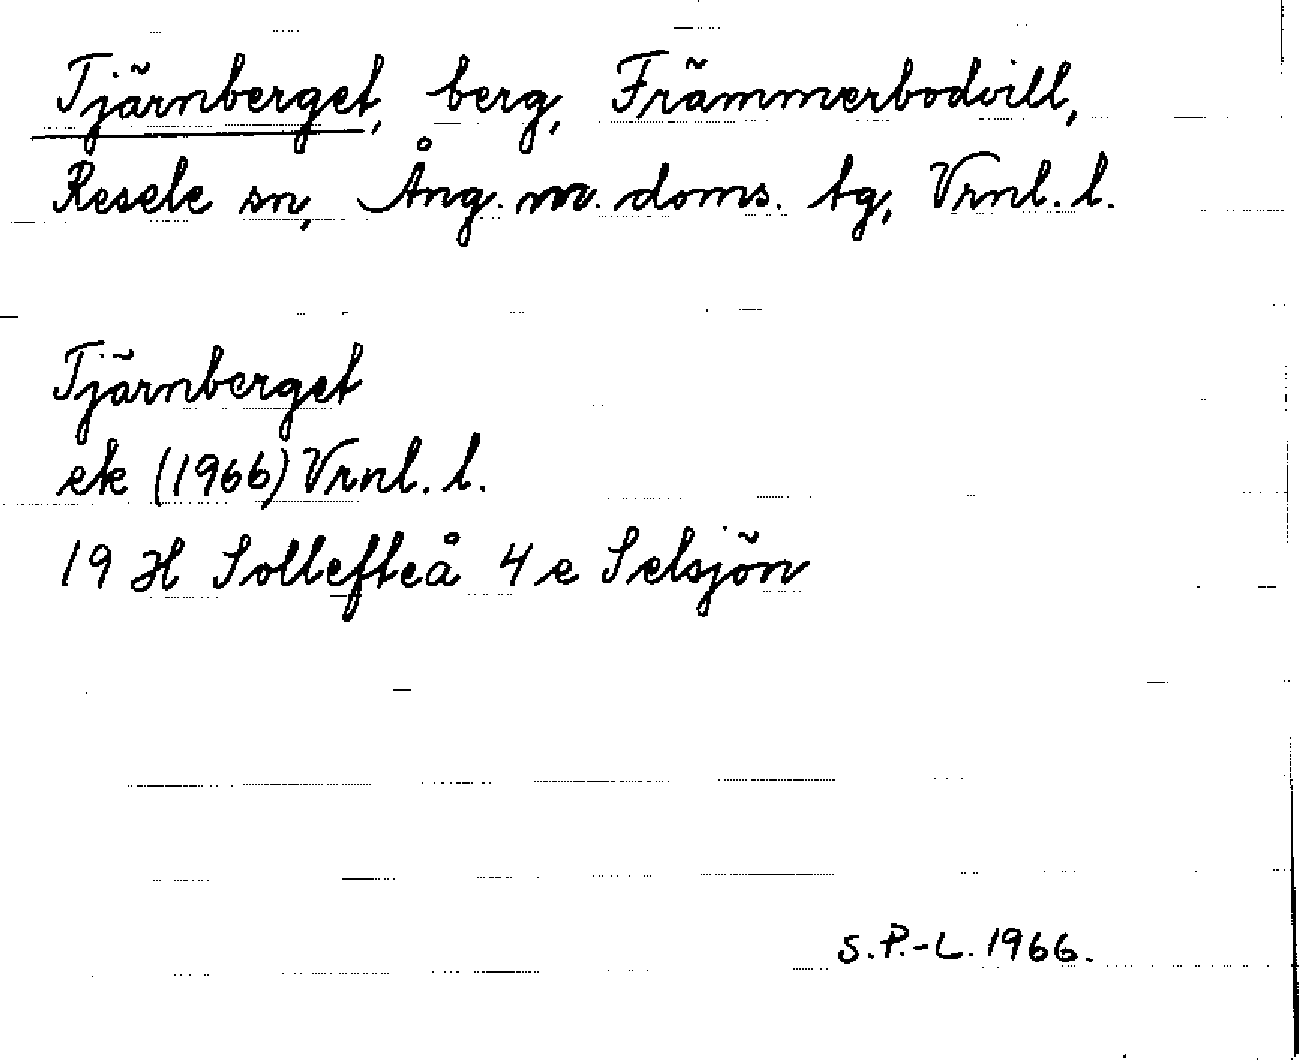 Tjärnberget, berg, Främmerbodvill,
Resele sn, Ång. m. doms. tg, Vrnl. l.
Tjärnberget
ek (1966) Vrnl. l.
19 H Sollefteå 4 e Selsjön
S. P.-L. 1966.